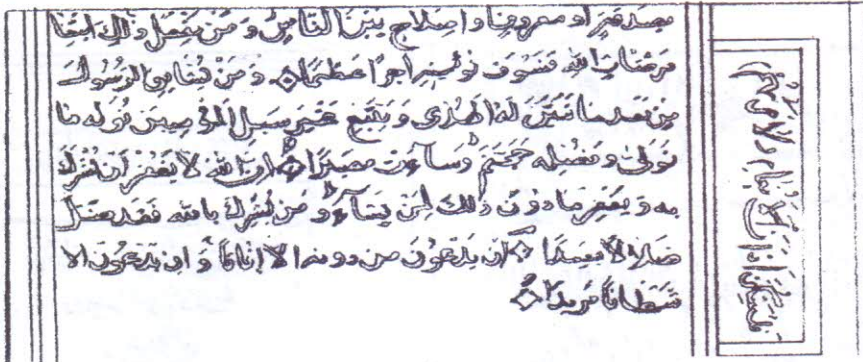 بصدقة او معروف او اصلاح بين الناس و من يفعل ذلك ابتغا
مرضات الله فسوف نوتيه اجرا عظيما و من يشاقق الرسول
من بعد ما تبين له الهدى و يتبع غير سبيل المؤمنين نوله ما
تولى و نصله جهنم و ساءت مصيرا ان الله لا يغفر ان يشرك
به و يغفر ما دون ذلك لمن يشاء و من يشرك بالله فقد ضل
ضلالا بعيدا ان يدعون من دونه الا اناثا و ان يدعون الا
شيطانا مريدا